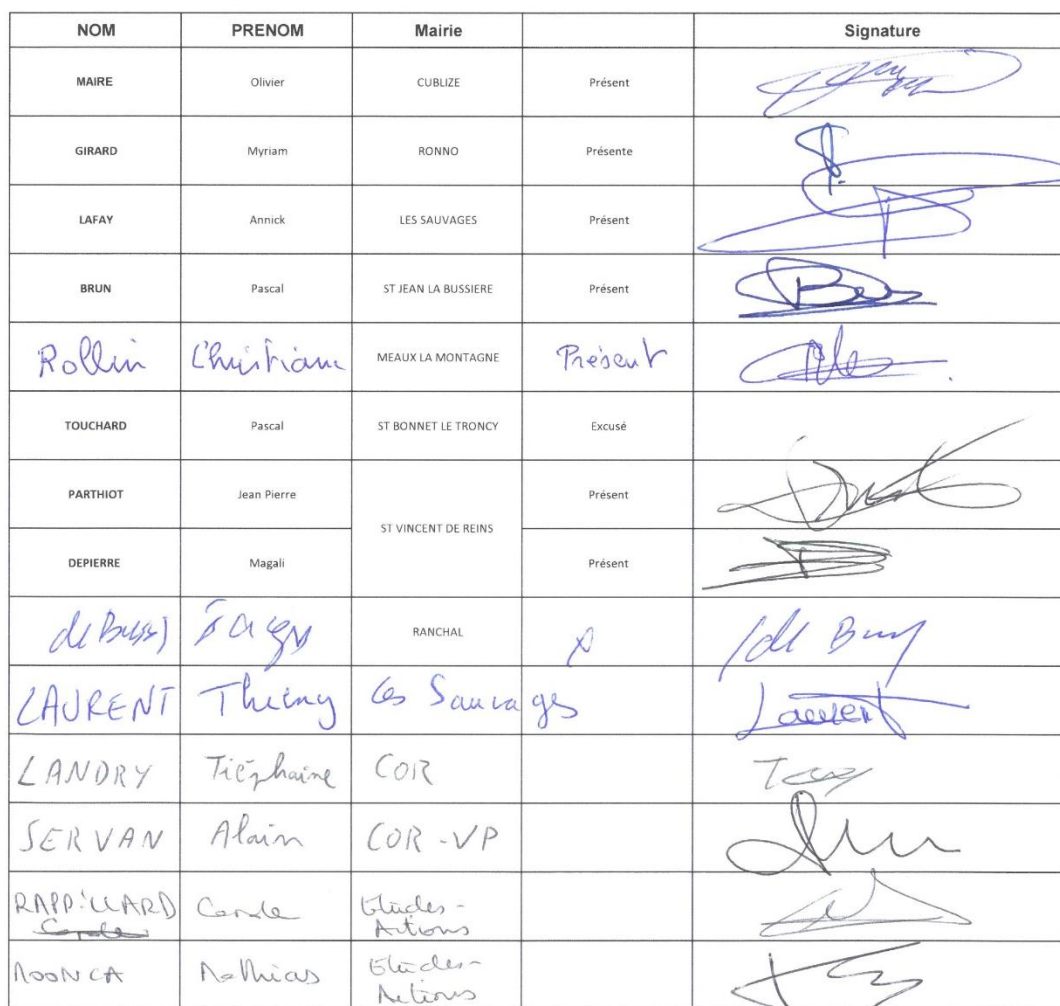 NOM PRENOM Mairie Signature
MAIRE Olivier CUBLIZE Présent
GIRARD Myriam RONNO Présente
LAFAY Annick LES SAUVAGES Présent
BRUN Pascal ST JEAN LA BUSSIERE Présent
Rollin Christiane MEAUX LA MONTAGNE Présent
TOUCHARD Pascal ST BONNET LE TRONCY Excusé
PARTHIOT Jean Pierre ST VINCENT DE REINS Présent
DEPIERRE Magali Présent
de Bussy RANCHAL X de Bussy
LAURENT Thierry Les Sauvages Laurent
LANDRY Tiéphaine COR
SERVAN Alain COR-VP
RAPPILLARD Carole Etudes-
Actions
Mathias Etudes-
Actions